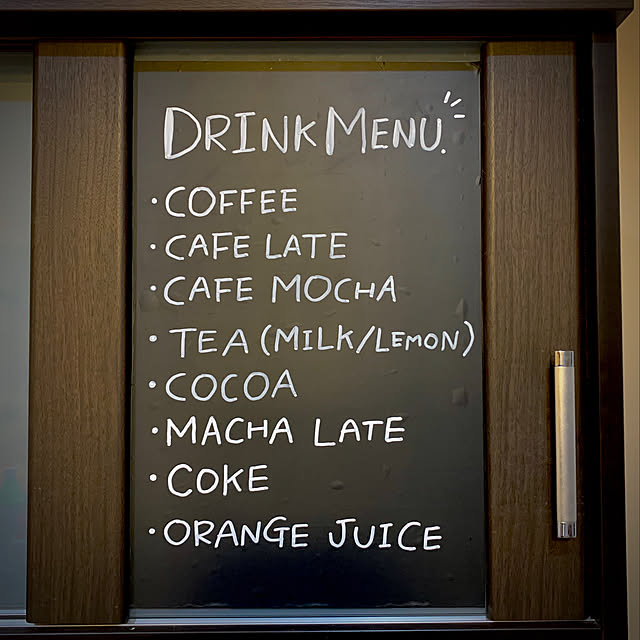 DRINK MENU.
· COFFEE
· CAFE LATE
· CAFE MOCHA
· TEA (MILK/LEMON)
· COCOA
· MACHA LATE
· COKE
· ORANGE JUICE